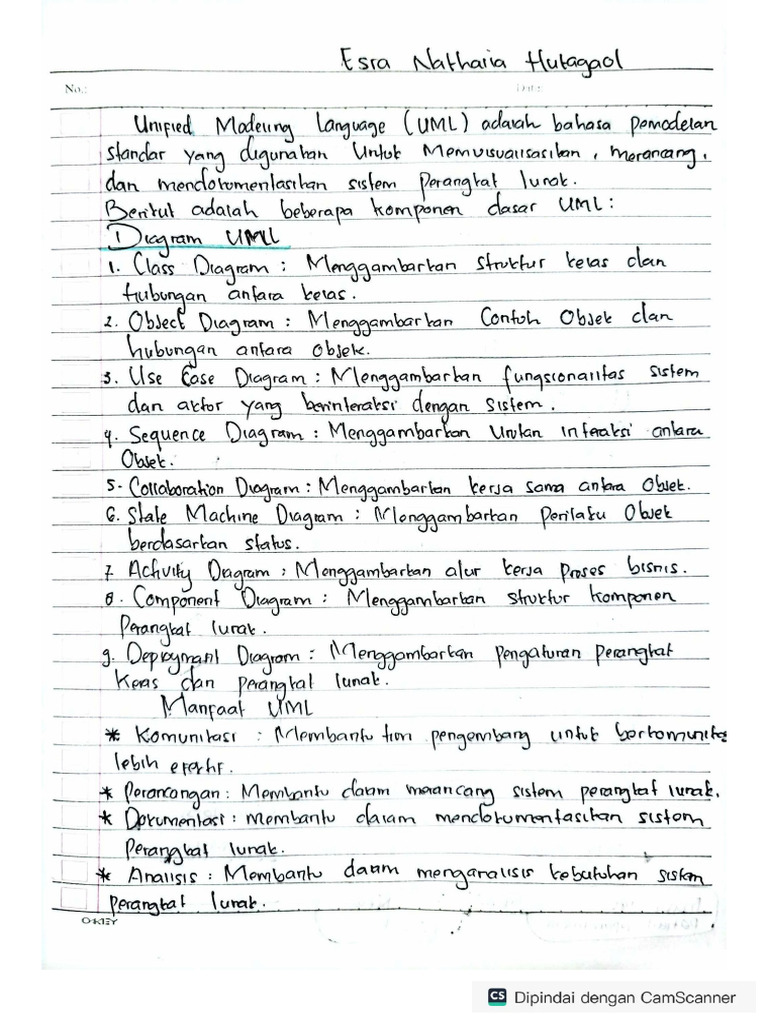 Esra Natharia Hutagaol
No.:
Date:
Unified Modeling Language (UML) adalah bahasa pemodelan
standar yang digunakan Untuk Memvisualisasikan, merancang,
dan mendokumentasikan sistem perangkat lunak.
Berikut adalah beberapa komponen dasar UML:
Diagram UML
1. Class Diagram : Menggambarkan struktur kelas dan
hubungan antara kelas.
2. Object Diagram : Menggambarkan Contoh Objek dan
hubungan antara objek.
3. Use Case Diagram : Menggambarkan fungsionalitas sistem
dan aktor yang berinteraksi dengan sistem.
4. Sequence Diagram : Menggambarkan Urutan interaksi antara
Objek.
5. Collaboration Diagram : Menggambarkan kerja sama antara Objek.
6. State Machine Diagram : Menggambarkan perilaku Objek
berdasarkan status.
7 Activity Diagram : Menggambarkan alur kerja proses bisnis.
8. Component Diagram : Menggambarkan struktur komponen
Perangkat lunak.
9. Deployment Diagram : Menggambarkan pengaturan perangkat
Keras dan perangkat lunak.
Manfaat UML
* Komunikasi : Membantu tim pengembang untuk berkomunikasi
lebih efektif.
* Perancangan : Membantu dalam merancang sistem perangkat lunak.
* Dokumentasi : membantu dalam mendokumentasikan sistem
Perangkat lunak.
* Analisis : Membantu dalam menganalisis kebutuhan sistem
perangkat lunak.
OKEY
CS Dipindai dengan CamScanner